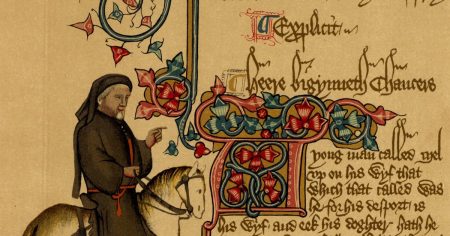 Explicit
Heere bigynneth Chaucers
A yong man called Mel
vp on his wyf that
Which that called was
he for his desport is
his wyf and eek his doghter hath he